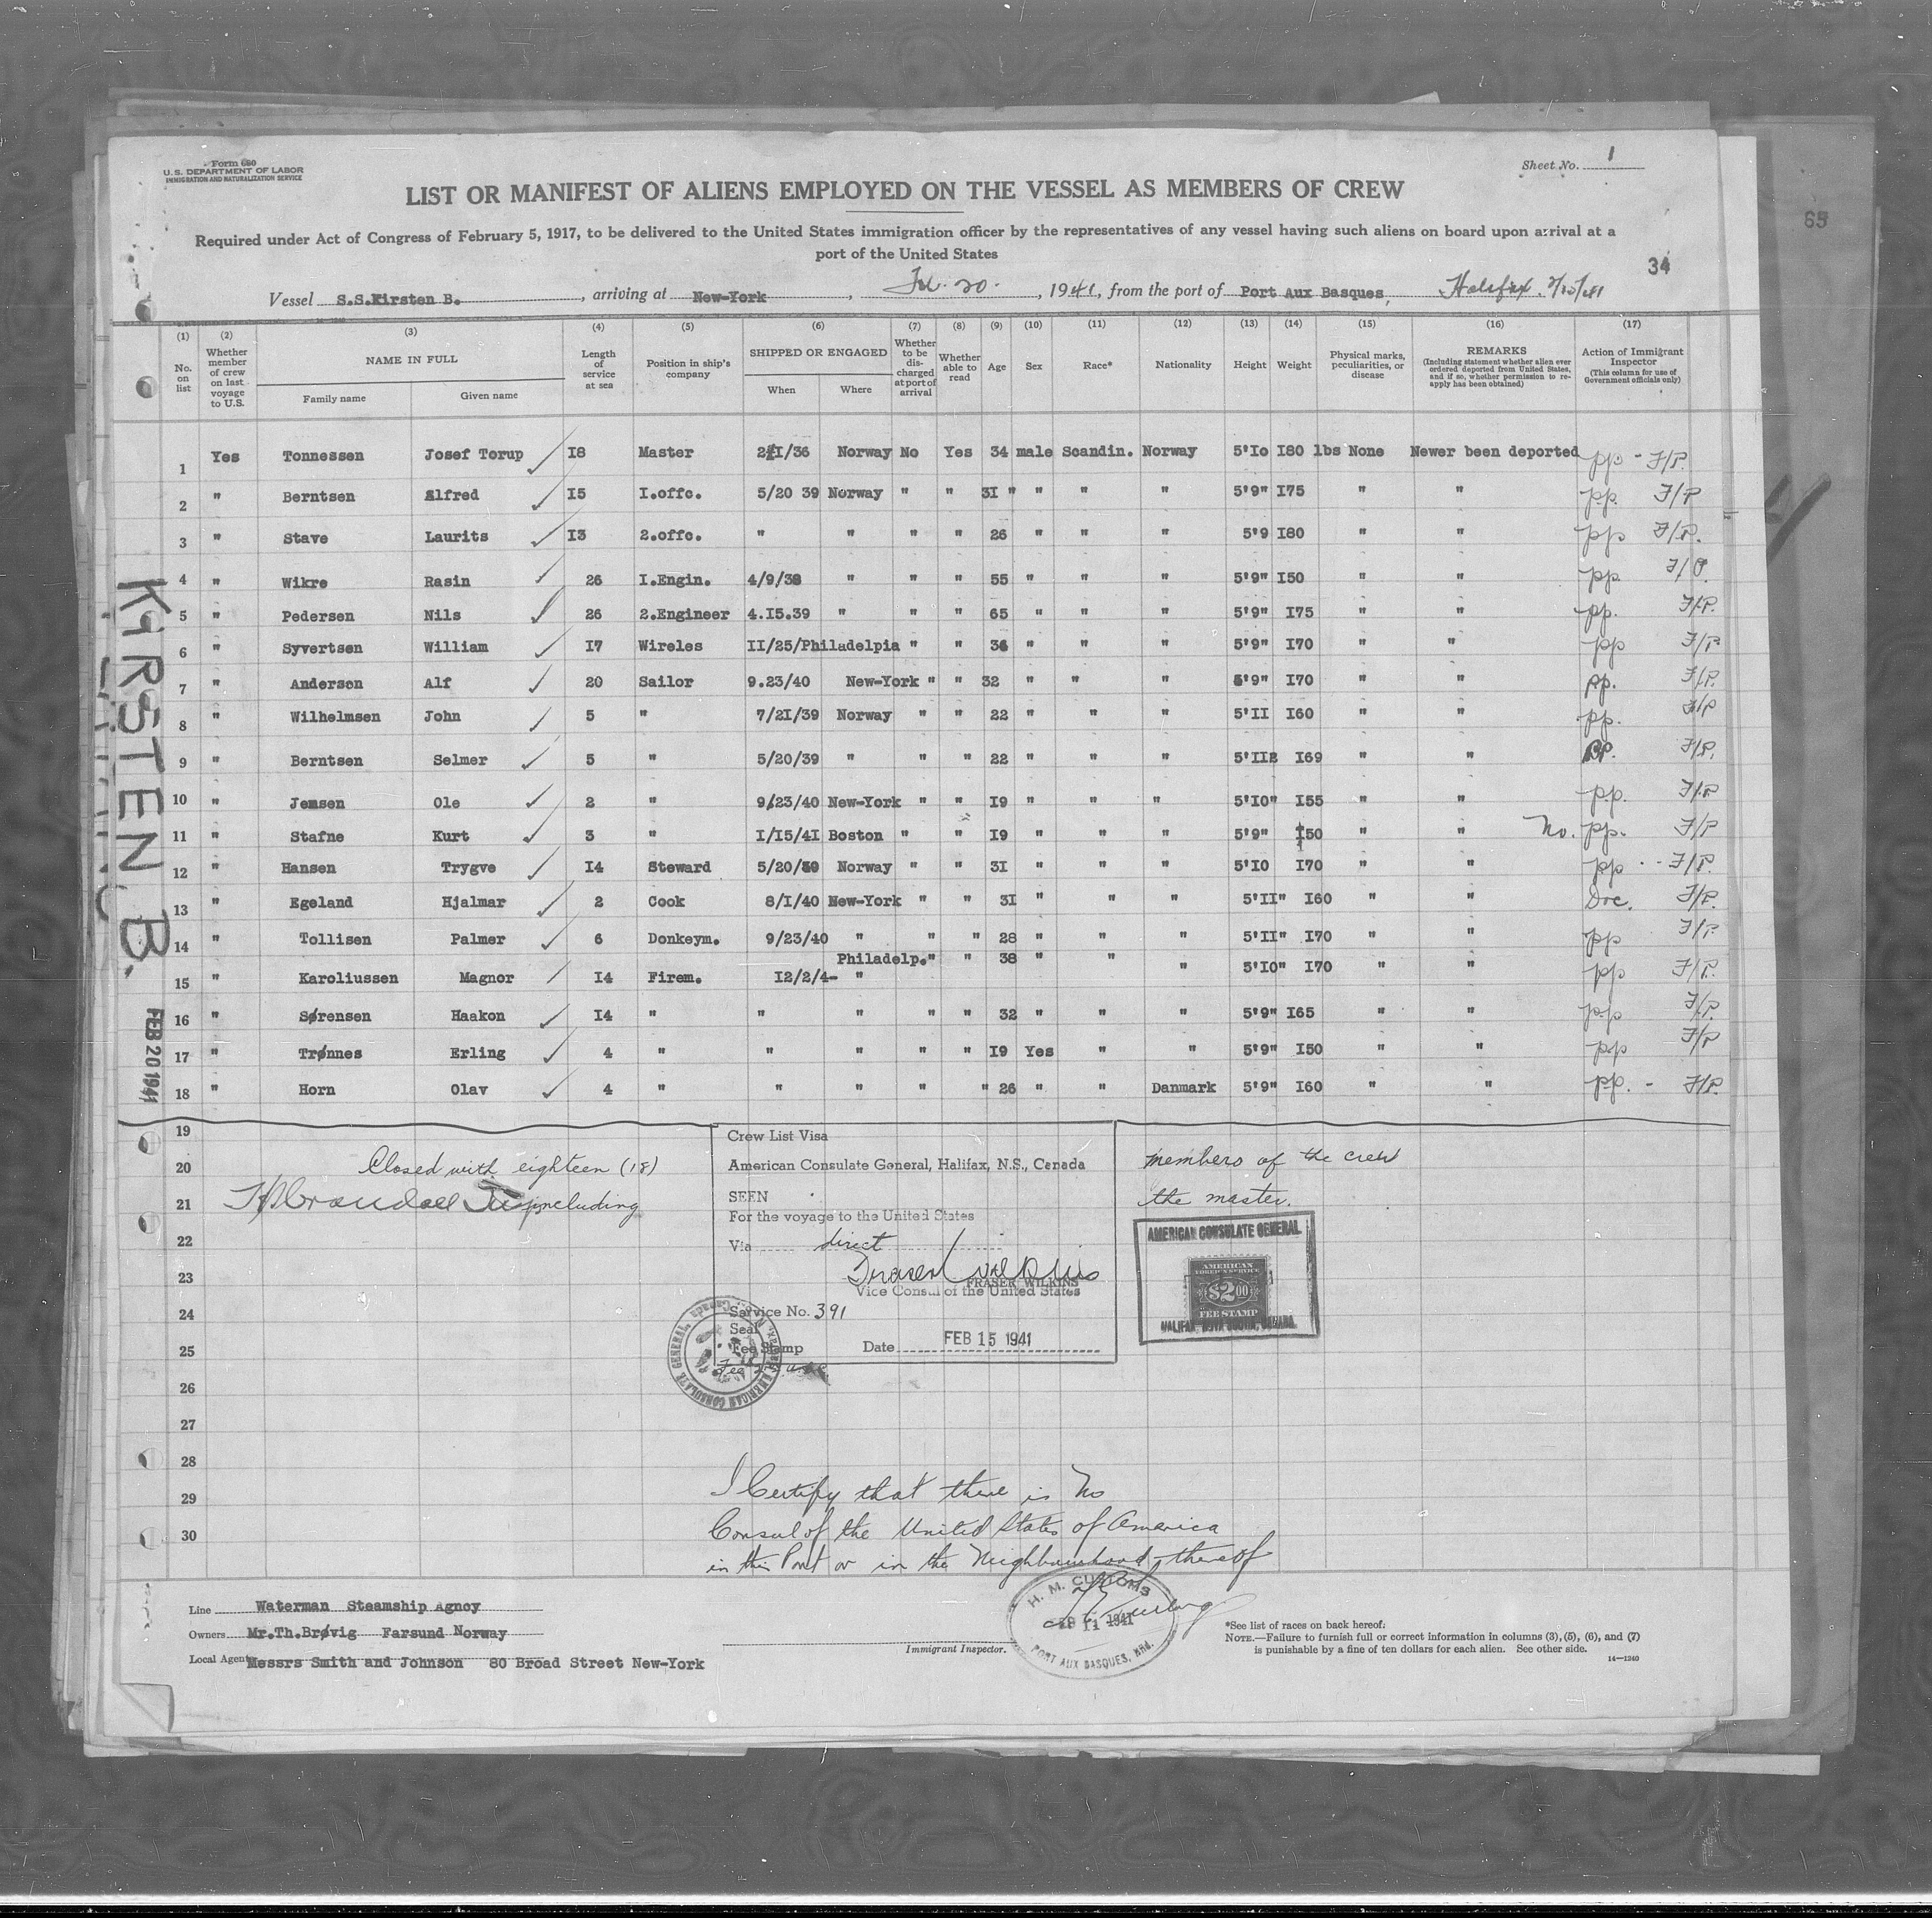 Form 680
U.S. DEPARTMENT OF LABOR
IMMIGRATION AND NATURALIZATION SERVICE
Sheet No. 1
LIST OR MANIFEST OF ALIENS EMPLOYED ON THE VESSEL AS MEMBERS OF CREW
Required under Act of Congress of February 5, 1917, to be delivered to the United States immigration officer by the representatives of any vessel having such aliens on board upon arrival at a
port of the United States
65
34
Vessel S.S.Kirsten B. , arriving at New-York , Feb. 20. , 1941, from the port of Port Aux Basques, Halifax. 2/15/41
(1) (2) (3) (4) (5) (6) (7) (8) (9) (10) (11) (12) (13) (14) (15) (16) (17)
No. on list
Whether member of crew on last voyage to U.S.
NAME IN FULL
Family name Given name
Length of service at sea
Position in ship's company
SHIPPED OR ENGAGED
When Where
Whether to be discharged at port of arrival
Whether able to read
Age
Sex
Race*
Nationality
Height
Weight
Physical marks, peculiarities, or disease
REMARKS
(Including statement whether alien ever ordered deported from United States, and if so, whether permission to reapply has been obtained)
Action of Immigrant Inspector
(This column for use of Government officials only)
1 Yes Tonnessen Josef Torup I8 Master 2/I/36 Norway No Yes 34 male Scandin. Norway 5'Io I80 lbs None Newer been deported pp - F/P.
2 " Berntsen Alfred I5 I.offc. 5/20 39 Norway " " 3I " " " " 5'9" I75 " " pp. F/P
3 " Stave Laurits I3 2.offc. " " " " 26 " " " 5'9 I80 " " pp F/P.
4 " Wikre Rasin 26 I.Engin. 4/9/38 " " " 55 " " " 5'9" I50 " " pp. F/P.
5 " Pedersen Nils 26 2.Engineer 4.I5.39 " " " 65 " " " 5'9" I75 " " pp. F/P.
6 " Syvertsen William I7 Wireles II/25/Philadelpia " " 36 " " " 5'9" I70 " " pp F/P
7 " Anderson Alf 20 Sailor 9.23/40 New-York " " 32 " " " 5'9" I70 " " pp. F/P.
8 " Wilhelmsen John 5 " 7/2I/39 Norway " " 22 " " " 5'II I60 " " pp. F/P
9 " Berntsen Selmer 5 " 5/20/39 " " " 22 " " " 5'II I69 " " pp. F/P.
10 " Jensen Ole 2 " 9/23/40 New-York " " I9 " " " 5'I0" I55 " " pp. F/P
11 " Stafne Kurt 3 " I/I5/4I Boston " " I9 " " " 5'9" I50 " " No. pp. F/P
12 " Hansen Trygve I4 Steward 5/20/39 Norway " " 3I " " " 5'I0 I70 " " pp - F/P.
13 " Egeland Hjalmar 2 Cook 8/I/40 New-York " " 3I " " " 5'II" I60 " " Doc. F/P.
14 " Tollisen Palmer 6 Donkeym. 9/23/40 " " " 28 " " " 5'II" I70 " " pp F/P
15 " Karoliussen Magnor I4 Firem. I2/2/4- Philadelp. " " " 38 " " " 5'I0" I70 " " pp F/P.
16 " Sørensen Haakon I4 " " " " " 32 " " " 5'9" I65 " " pp F/P.
17 " Trønnes Erling 4 " " " " " I9 Yes " " 5'9" I50 " " pp F/P
18 " Horn Olav 4 " " " " " 26 " " Danmark 5'9" I60 " " pp. - F/P.
KIRSTEN B.
FEB 20 1941
19
20
21
22
23
24
25
26
27
28
29
30
Closed with eighteen (18) members of the crew
including the master.
Crew List Visa
American Consulate General, Halifax, N.S., Canada
SEEN
For the voyage to the United States
Via direct
Fraser Wilkins
FRASER WILKINS
Vice Consul of the United States
Service No. 391
Seal
Fee Stamp
Date FEB 15 1941
AMERICAN CONSULATE GENERAL
AMERICAN
FOREIGN SERVICE
$2.00
FEE STAMP
HALIFAX, NOVA SCOTIA, CANADA
AMERICAN CONSULATE GENERAL
I Certify that there is No
Consul of the United States of America
in this Port or in the Neighbourhood thereof
H. M. CUSTOMS
FEB 11 1941
PORT AUX BASQUES, NFld.
Line Waterman Steamship Agncy
Owners Mr.Th.Brøvig Farsund Norway
Local Agent Messrs Smith and Johnson 80 Broad Street New-York
Immigrant Inspector.
*See list of races on back hereof.
NOTE.—Failure to furnish full or correct information in columns (3), (5), (6), and (7)
is punishable by a fine of ten dollars for each alien. See other side.
14—1240